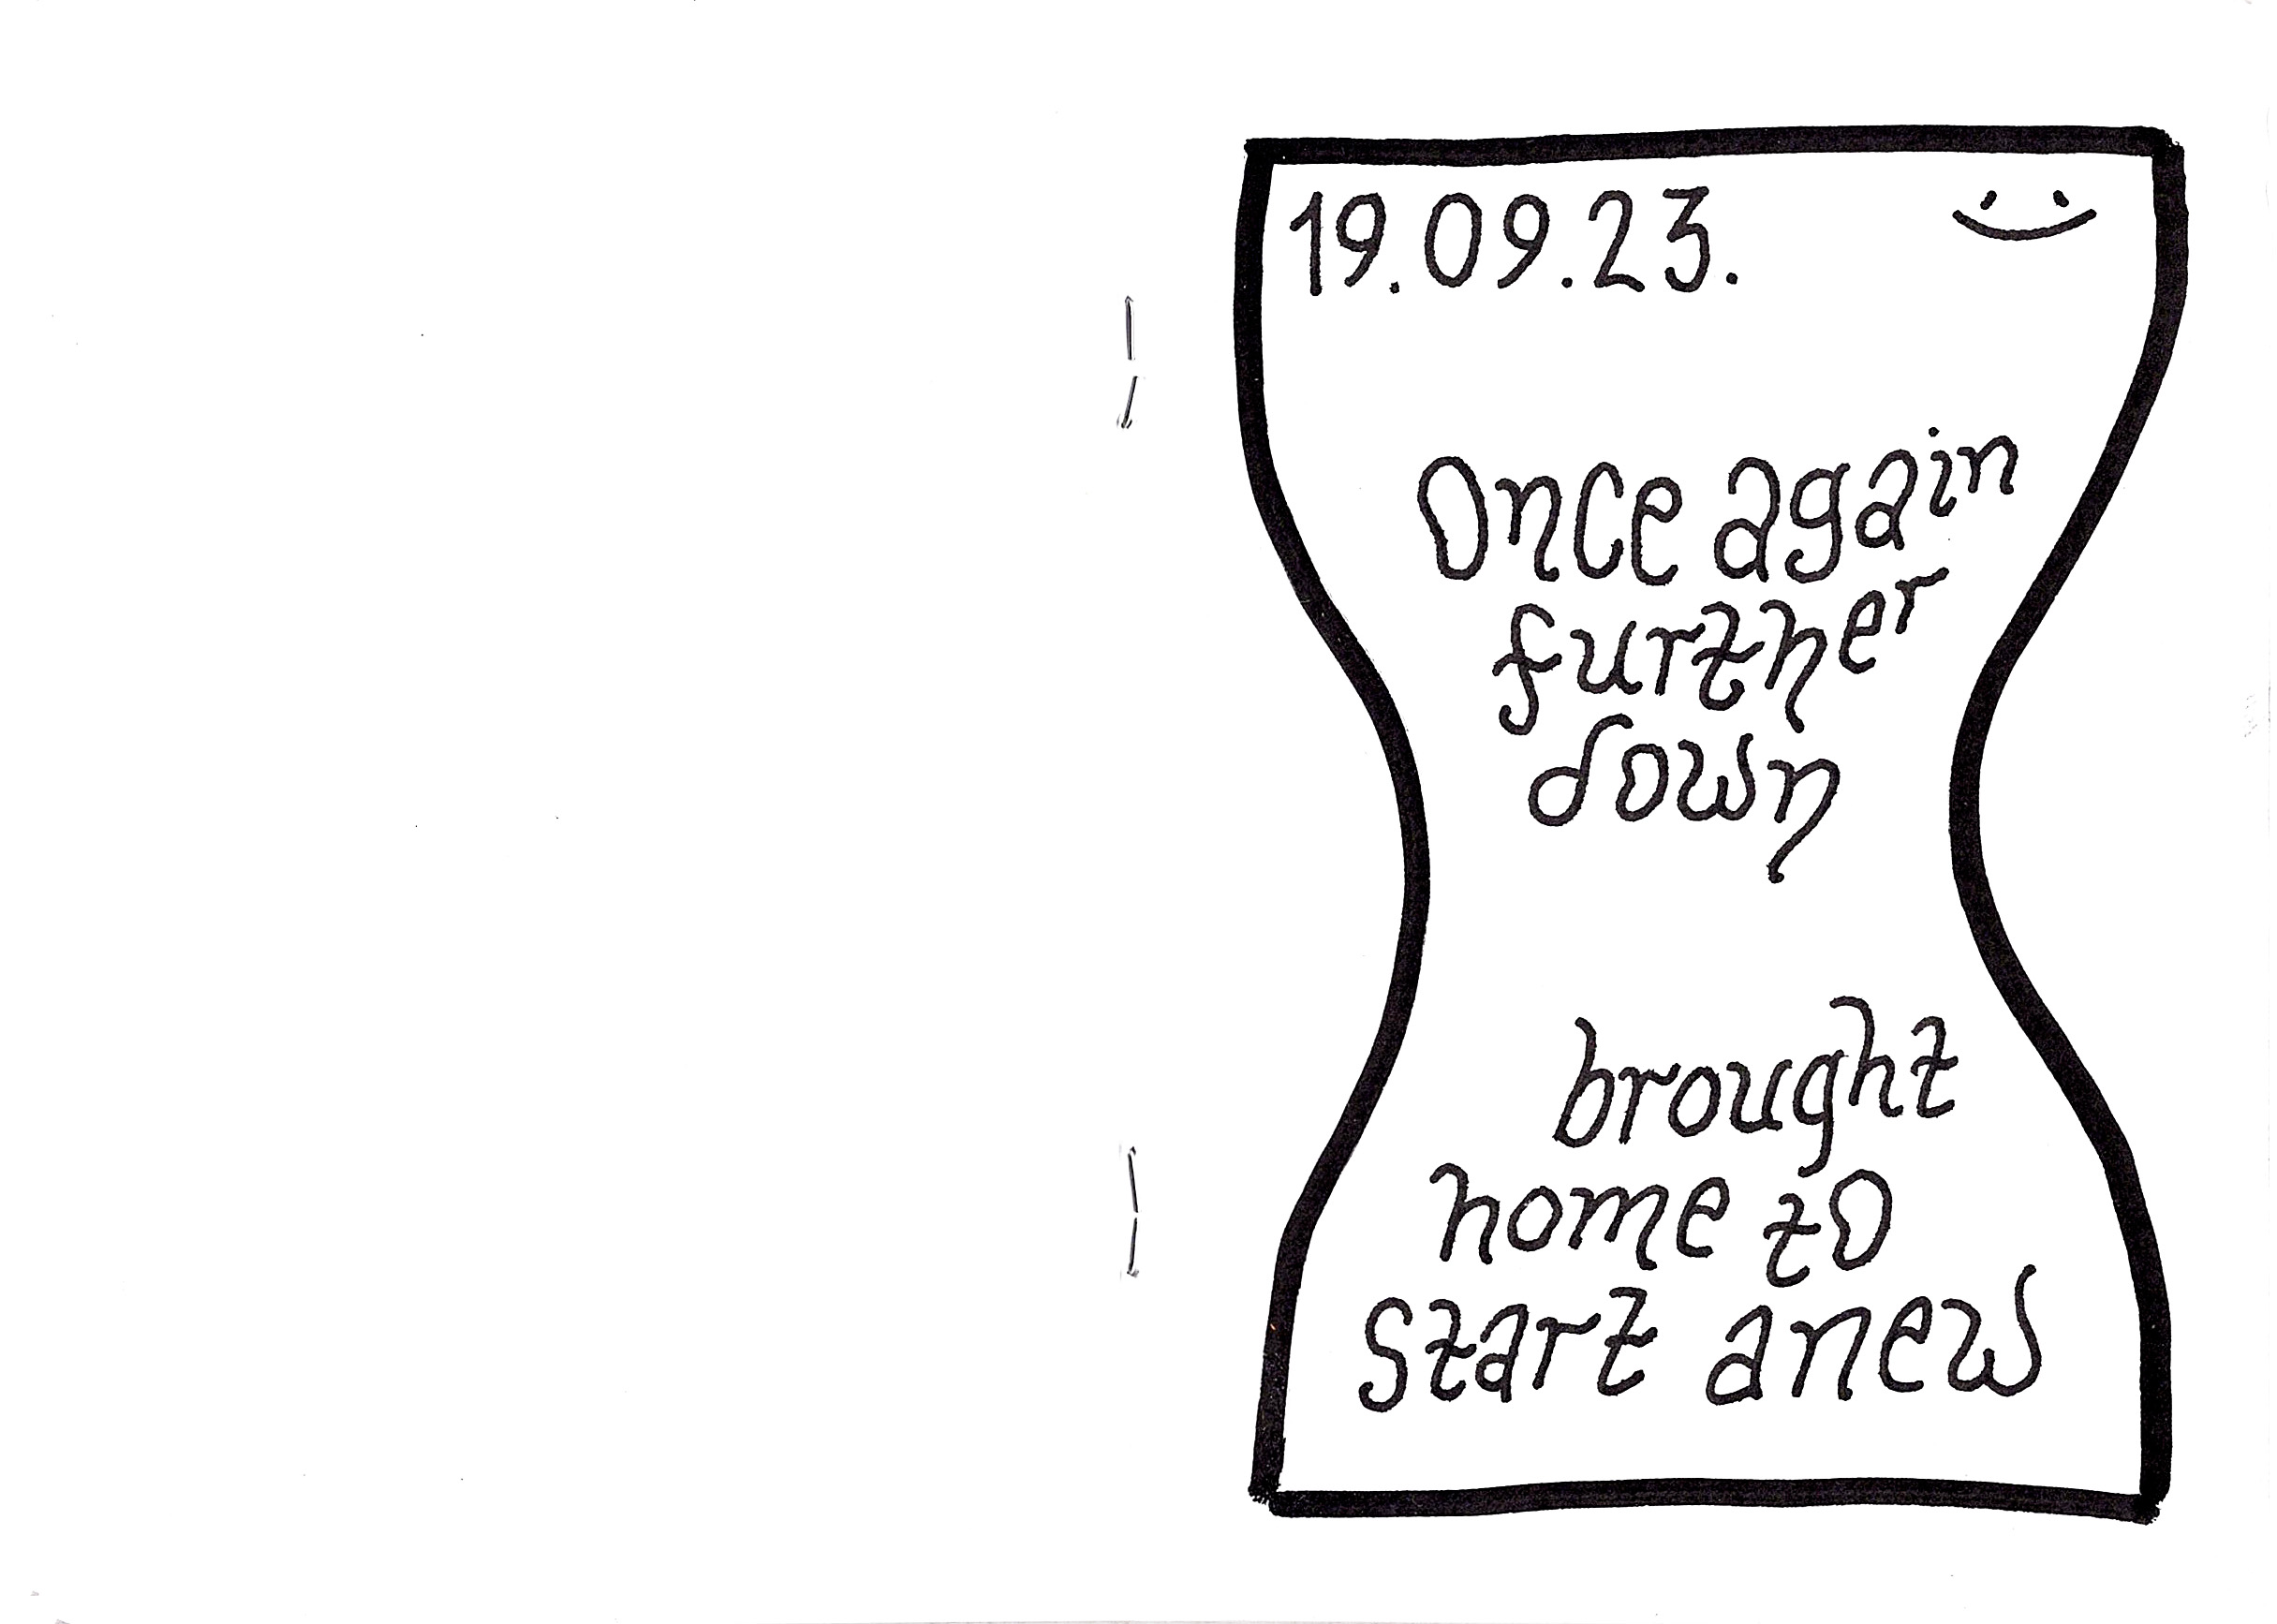 19.09.23.
Once again
further
down
brought
home to
start anew